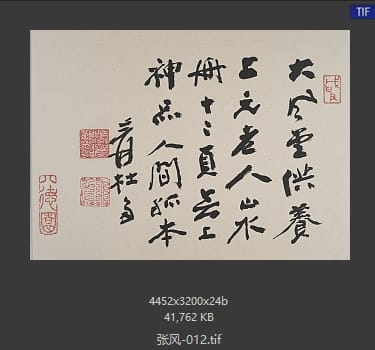 TIF
大風堂供養
上元老人山水
冊十二頁無上
神品人間孤本
爰杜多
八德園
4452x3200x24b
41,762 KB
张风-012.tif